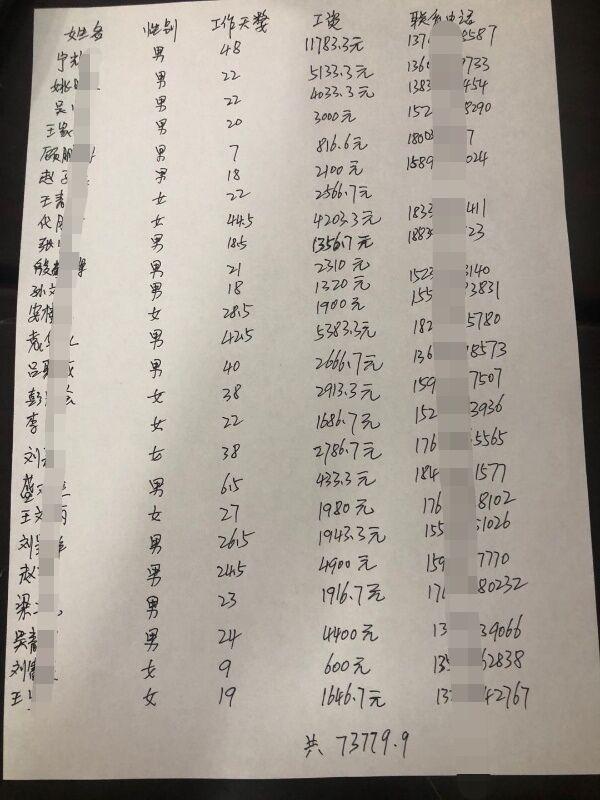 姓名 性别 工作天数 工资 联系电话
宁 男 48 11783.3元 137 8587
姚 男 22 5133.3元 136 9733
吴 男 22 4033.3元 138 454
王 男 20 3000元 152 8290
顾朋 男 7 816.6元 1800 7
赵 男 18 2100元 1589 024
王 女 22 2566.7元
代 女 44.5 4203.3元 1833 411
张 男 18.5 1356.7元 1883 23
殷 男 21 2310元
孙文 男 18 1320元 1523 3140
安 女 28.5 1900元 155 3831
袁 男 42.5 5383.3元 182 5780
吕 男 40 2666.7元 136 8573
彭 女 38 2913.3元 159 7507
李 女 22 1686.7元 152 3936
刘 女 38 2786.7元 176 5565
盛 男 6.5 433.3元 184 1577
王文 女 27 1980元 176 8102
刘 男 26.5 1943.3元 155 1026
赵 男 24.5 4900元 159 7770
梁 男 23 1916.7元 17 80232
吴 男 24 4400元 13 39066
刘 女 9 600元 135 62838
王 女 19 1646.7元 13 42767
共 73779.9